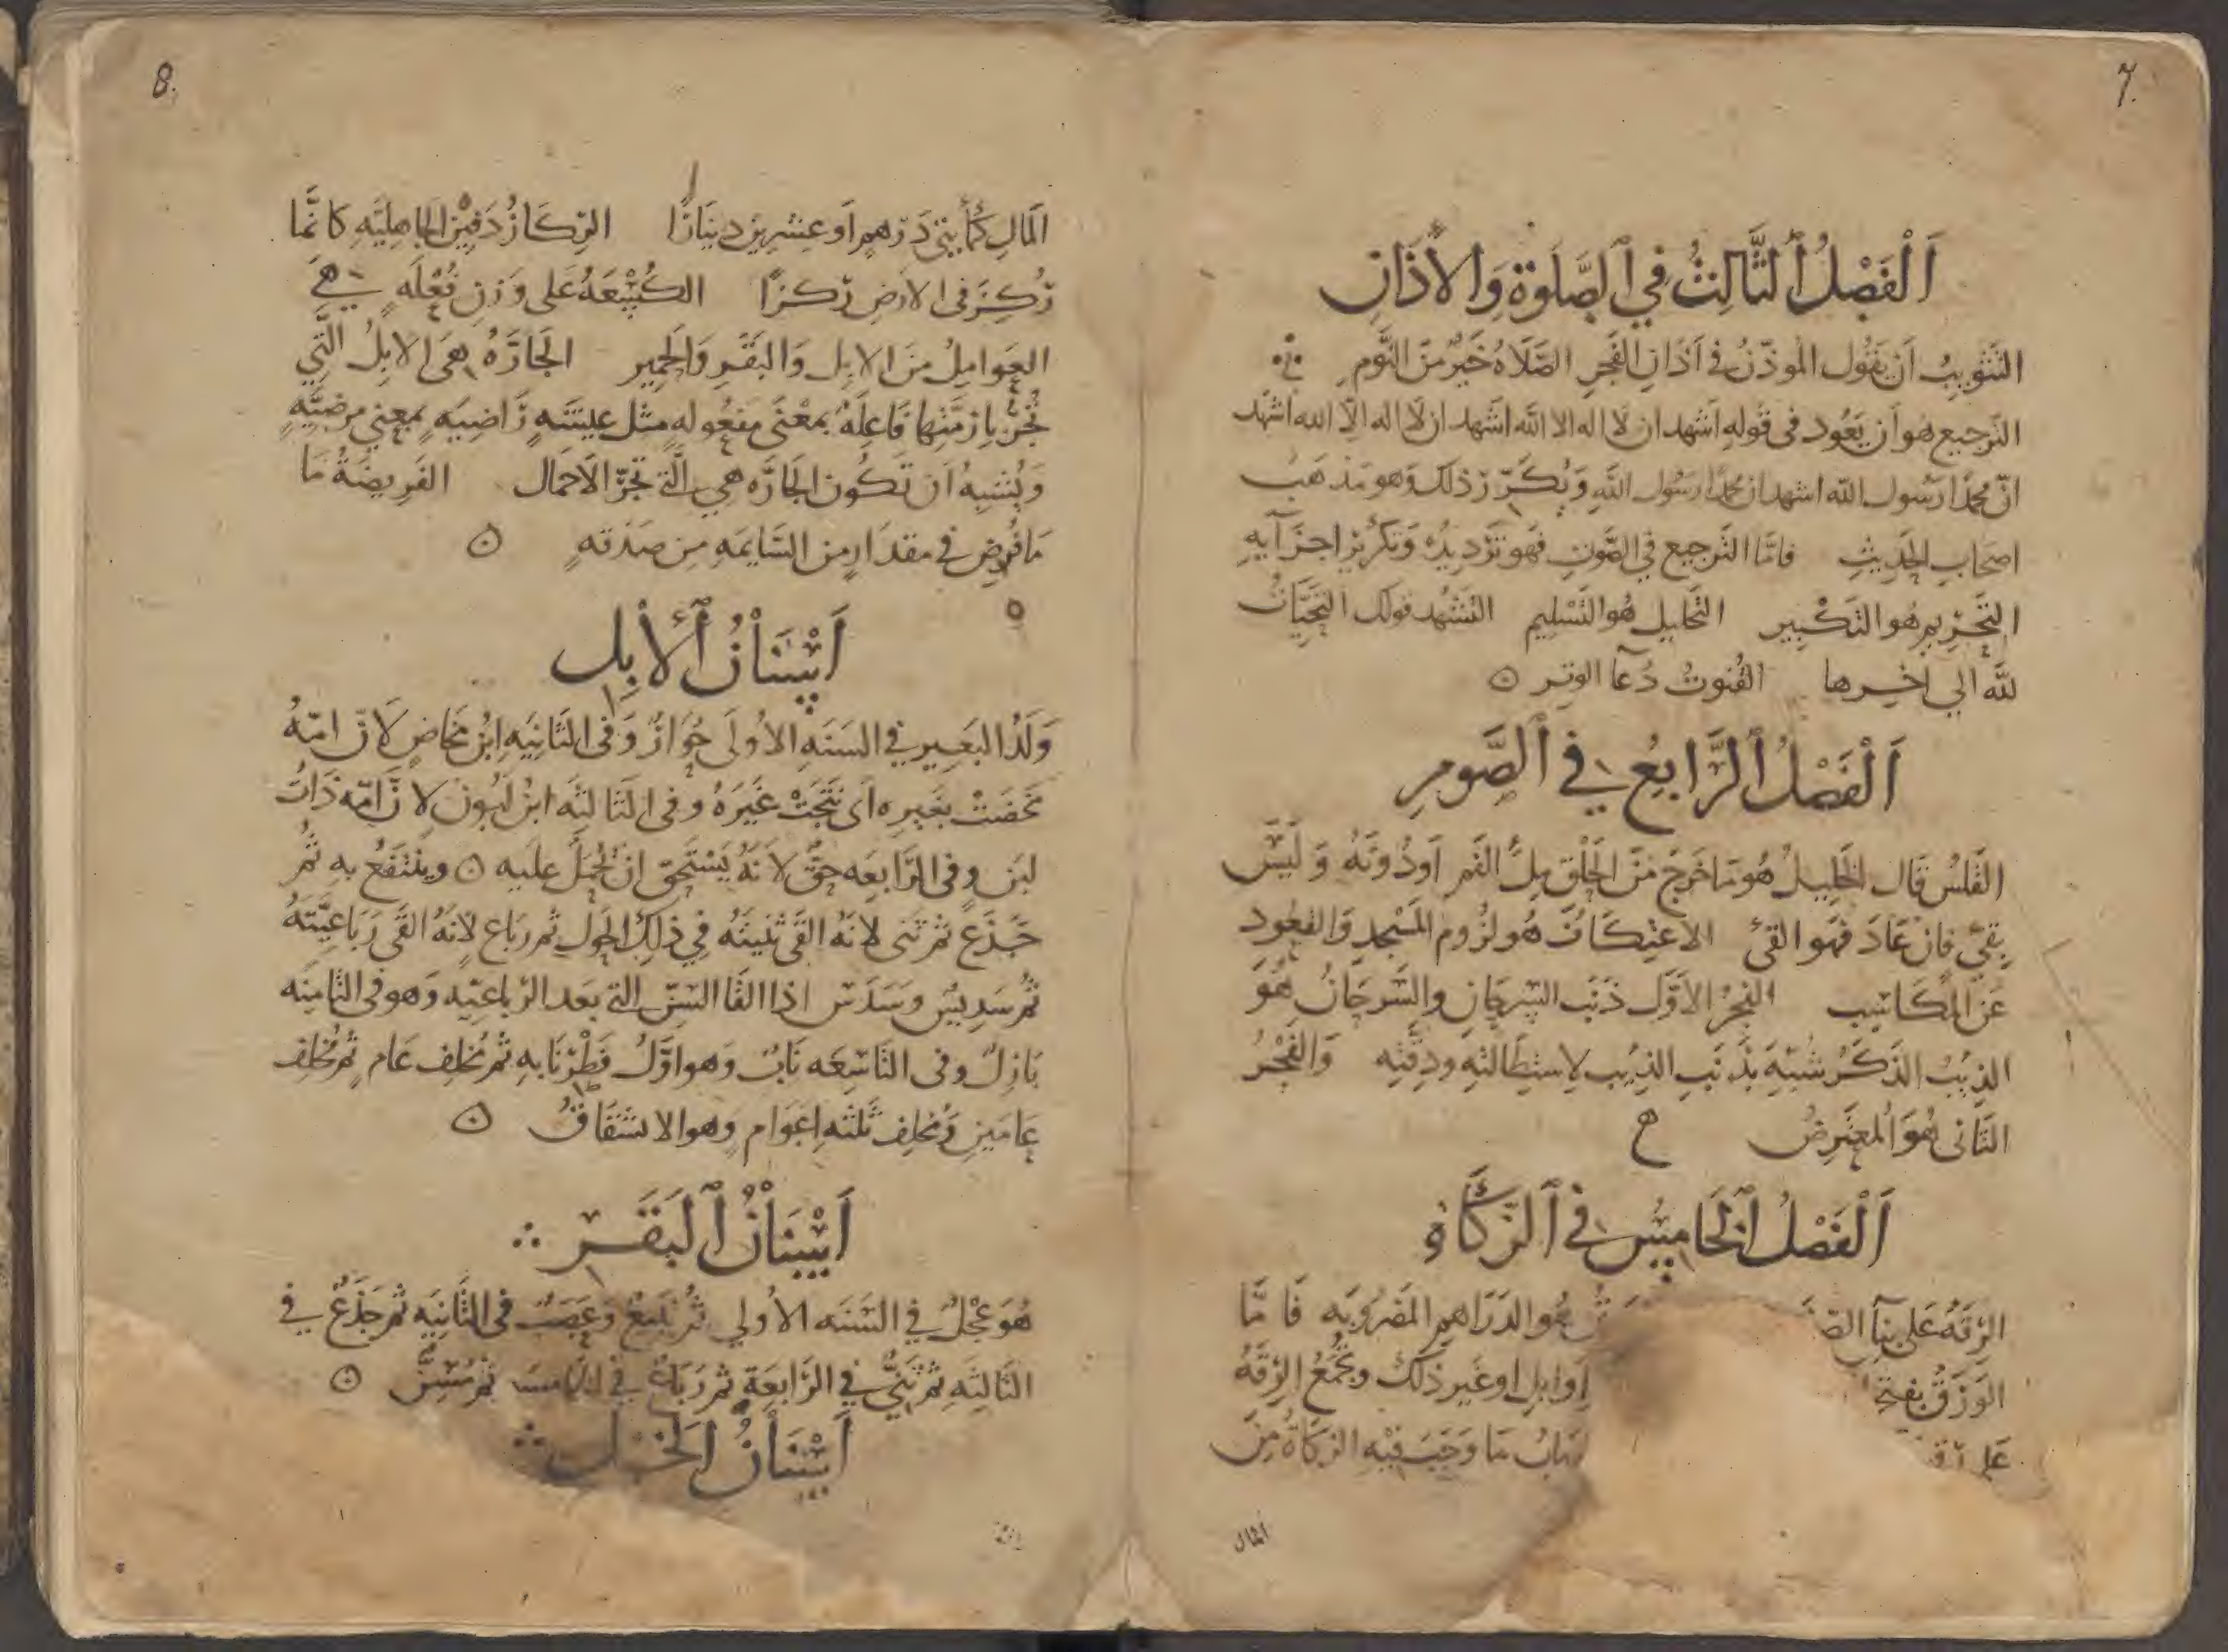 7.
اَلْفَصْلُ ٱلثَّالِثُ فِي ٱلصَّلَوةِ وَالأَذَانِ
التثويبُ أن يَقُول المُوذّنُ فى أذانِ الفَجرِ الصَّلَاةُ خَيرٌ مِنَ النَّوم
الترجيع هُو أن يَعُود فى قوله اشهد ان لا اله الا الله اشهد ان لا اله الا الله اشهد
انّ محمدًا رسُول الله اشهد ان محمدًا رسُول الله وَيُكَرّر ذلك وَهو مَذهَب
اصحاب الحَدِيثِ فامّا الترجيع في الصَّوتِ فهو تَرْدِيدُهُ وَتكريرُ اجزآيهِ
التَّحْرِيم هُو التكْبِير التَّحليل هُو التَّسْلِيم التشهد قولك التَّحِيَّاتُ
لله الي اخِرها القُنوتُ دُعآ الوِتر
اَلْفَصْلُ ٱلرَّابِعُ فِي ٱلصَّومِ
القَلسُ قال الخَلِيلُ هُو مَا خَرَجَ مِنَ الحَلْقِ مِلْ الفَم اَو دُونَهُ وَلَيْسَ
بِقيْ فَإن عَادَ فَهو القئ الاعتِكَافُ هُو لزُوم المَسْجدِ وَالقعُود
عَنِ المَكَاسِب الفجرُ الأوّل ذنَب السِرحَانِ والسِّرحَانُ هُوَ
الذِيبُ الذَكَرُ شُبِّهَ بِذَنَبِ الذِيب لاستِطَالتهِ ودِقّتِهِ وَالفَجْرُ
الثَانى هُوَ المُعتَرِضُ ح
اَلْفَصْلُ ٱلخَامِسُ فِي ٱلزَّكَاةِ
الرِقَهُ عَلى بنآ الص هُو الدَرَاهِم المَضرُوبَه فَامَّا
الوَرَقُ بفتح او ابِل او غَير ذلك وتُجمَعُ الرِقَةُ
على مَا وَجَبَ فيْهِ الزكاةُ مِنَ
المال
8.
المَالِ كمأيتى دِرهمٍ أو عِشرِين دِينَارًا الرِكَازُ دَفِيْن الجاهِلِيَّهِ كانَّما
رُكِزَ فى الارضِ رَكزًا الكُسْعَهُ عَلى وَزنِ فُعْلَهٍ هِيَ
العَوامِلُ مِنَ الإبِل وَالبَقَرِ وَالحَمِير الجَارَّهُ هىَ الإبِلُ التَّي
تُجَرُّ بازِمَّتِها فَاعِلَهٌ بمَعْنَى مفعُولهٍ مثل عِيشَهٍ رَاضِيَهٍ بمعنى مرضِيَّهٍ
وَيُشْبِهُ أن تَكُون الجَارَّه هي الَّتى تجرّ الأحمال الفَرِيضَةُ مَا
مَا فُرِض فى مقدَارٍ من السَّايمَهِ مِن صَدَقهٍ
اَسْنَانُ ٱلْأبِل
وَلَدُ البَعِير في السَنَهِ الأُولَى حُوَارٌ وَفى الثانِيَهِ ابْنُ مَخَاضٍ لأنّ امّهُ
مخَضَتْ بغَيرِه اى نَتَجَتْ غَيرَهُ وفى الثالثه ابنُ لَبُون لانّ امّه ذَاتُ
لَبَن وفى الرَّابِعَه حِقٌ لأنَّهُ يَسْتَحِق ان يُحمَلَ عليه ويُنْتَفَعُ بهِ ثُمّ
جَذَع ثم ثَنى لانه القَى ثنيتَهُ فِي ذلِكَ الحَول ثم رَبَاع لأنهُ القَى رَبَاعِيَّتَهُ
ثم سَدِيسٌ وسَدَسٌ اذا القَا السِنّ التي بَعد الرَباعِيَه وَهو فى الثامِنه
بَازِلٌ وفى التَّاسِعَه نَابٌ وَهو اوّلُ فَطْرِ نَابهِ ثم مُخلِف عَام ثم مُخلِف
عامَينِ ومُخلِف ثَلثهِ اعوَام وهو الانشقَاقُ
اَسْنَانُ ٱلْبَقَر
هُوَ عِجْلٌ فِي السَنَه الأولي ثم تَبيعٌ وَعَضبٌ فى الثَّانِيَه ثم جَذَعٌ فِي
الثَالثِهِ ثم ثَنيٌّ فِي الرَّابِعَة ثم رَبَاعٌ في الخامسه ثم مُسِنٌّ
اَسْنَانُ الخَيل